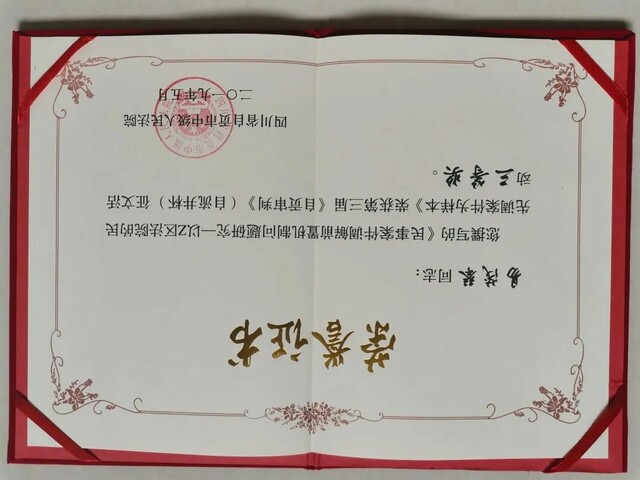 荣誉证书
易茂慕同志：
您撰写的《民事案件调解前置机制问题研究—以ZZ区法院的民
先调案件为样本》荣获第三届《自贡审判》（自流井杯）征文活
动三等奖。
四川省自贡市中级人民法院
二〇一九年五月